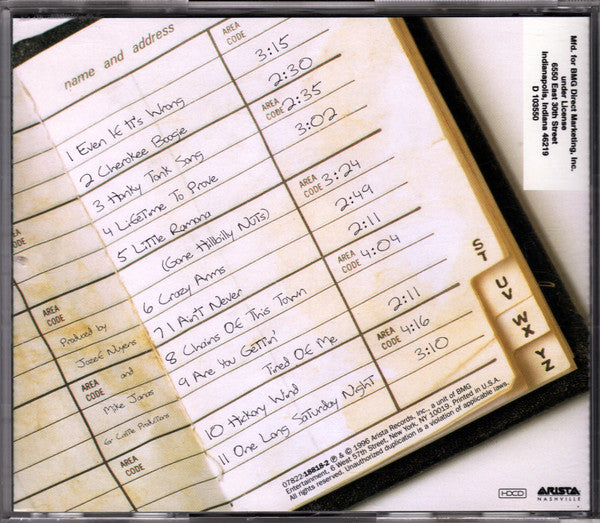 name and address
AREA CODE
1 Even If It's Wrong 3:15
2 Cherokee Boogie 2:30
AREA CODE
3 Honky Tonk Song 2:35
4 LifeTime To Prove 3:02
5 LiTTle Ramona
(Gone Hillbilly NuTs) 3:24
AREA CODE
6 Crazy Arms 2:49
7 I Ain't Never 2:11
8 Chains Of This Town 4:04
AREA CODE
9 Are You GeTTin'
Tired Of Me 2:11
10 Hickory Wind 4:16
AREA CODE
11 One Long Saturday Night 3:10
AREA CODE
Produced by
Jozef Nuyens
AREA CODE
and
Mike Janas
for Castle Productions
AREA CODE
ST
UV
WX
YZ
Mfd. for BMG Direct Marketing, Inc.
under License
6550 East 30th Street
Indianapolis, Indiana 46219
D 103350
07822-18818-2 ℗ & © 1996 Arista Records, Inc., a unit of BMG
Entertainment, 6 West 57th Street, New York, NY 10019. Printed in U.S.A.
All rights reserved. Unauthorized duplication is a violation of applicable laws.
HDCD
ARISTA
NASHVILLE